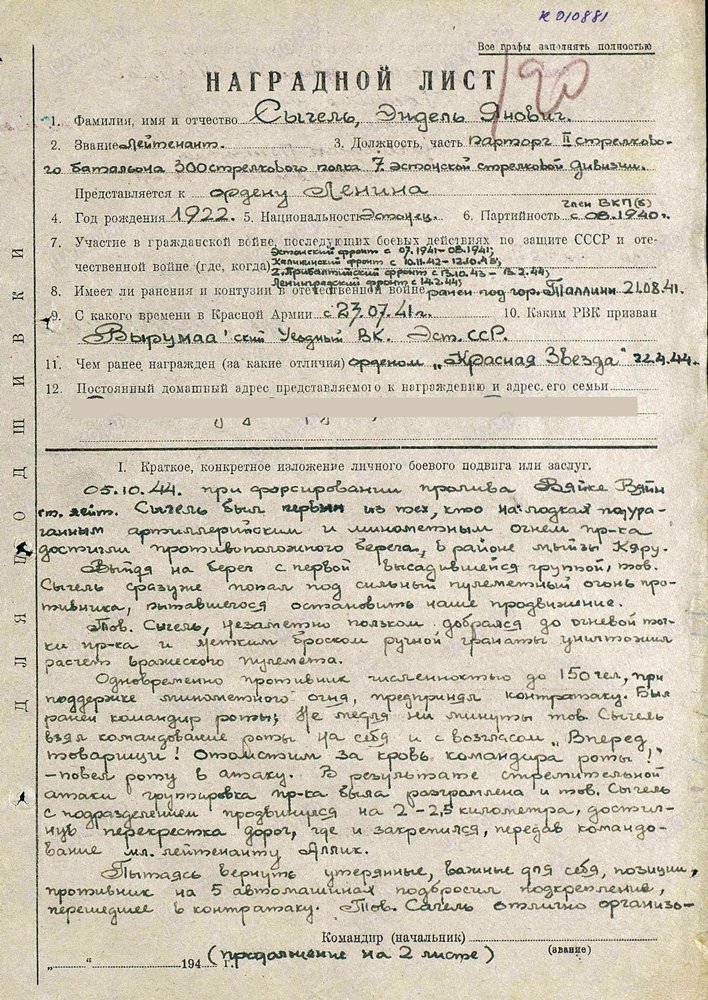 к 010881
Все графы заполнять полностью
НАГРАДНОЙ ЛИСТ
1. Фамилия, имя и отчество Сыгель, Эндель Янович.
2. Звание Лейтенант. 3. Должность, часть Парторг II стрелково-
го батальона 300 стрелкового полка 7. эстонской стрелковой дивизии.
Представляется к ордену Ленина
член ВКП(б)
4. Год рождения 1922. 5. Национальность Эстонец. 6. Партийность с 08.1940г.
7. Участие в гражданской войне, последующих боевых действиях по защите СССР и оте-
Эстонский фронт с 07.1941-08.1941;
чественной войне (где, когда) Калининский фронт с 10.11.42-12.10.43;
2. Прибалтийский фронт с 13.10.43 - 13.2.44;
Ленинградский фронт с 14.2.44;
8. Имеет ли ранения и контузии в отечественной войне ранен под гор. Таллинн 21.08.41.
9. С какого времени в Красной Армии с 23.07.41 г. 10. Каким РВК призван
Вырумаа'ский Уездный ВК. Эст. ССР.
11. Чем ранее награжден (за какие отличия) орденом „Красная Звезда" 22.4.44.
12. Постоянный домашный адрес представляемого к награждению и адрес его семьи
I. Краткое, конкретное изложение личного боевого подвига или заслуг.
05.10.44. при форсировании пролива Вяйке Вяйн
ст. лейт. Сыгель был первым из тех, кто на лодках под ура-
ганным артиллерийским и минометным огнем пр-ка
достигли противоположного берега, в районе мызы Кяру.
Выйдя на берег с первой высадившейся группой, тов.
Сыгель сразу же попал под сильный пулеметный огонь про-
тивника, пытавшегося остановить наше продвижение.
Тов. Сыгель, незаметно ползком добрался до огневой точ-
ки пр-ка и метким броском ручной гранаты уничтожил
расчет вражеского пулемета.
Одновременно противник численностью до 150 чел., при
поддержке минометного огня, предпринял контратаку. Был
ранен командир роты; Не медля ни минуты тов. Сыгель
взял командование роты на себя и с возгласом „Вперед
товарищи! Отомстим за кровь командира роты!"
- повел роту в атаку. В результате стремительной
атаки группировка пр-ка была разгромлена и тов. Сыгель
с подразделением продвинулся на 2-2,5 километра, достиг-
нув перекрестка дорог, где и закрепился, передав командо-
вание мл. лейтенанту Аллик.
Пытаясь вернуть утерянные, важные для себя, позиции,
противник на 5 автомашинах подбросил подкрепление,
перешедшее в контратаку. Тов. Сыгель отлично организо-
Командир (начальник)
(звание)
„ “ 194 г. (продолжение на 2 листе)
ДЛЯ ПОДШИВКИ